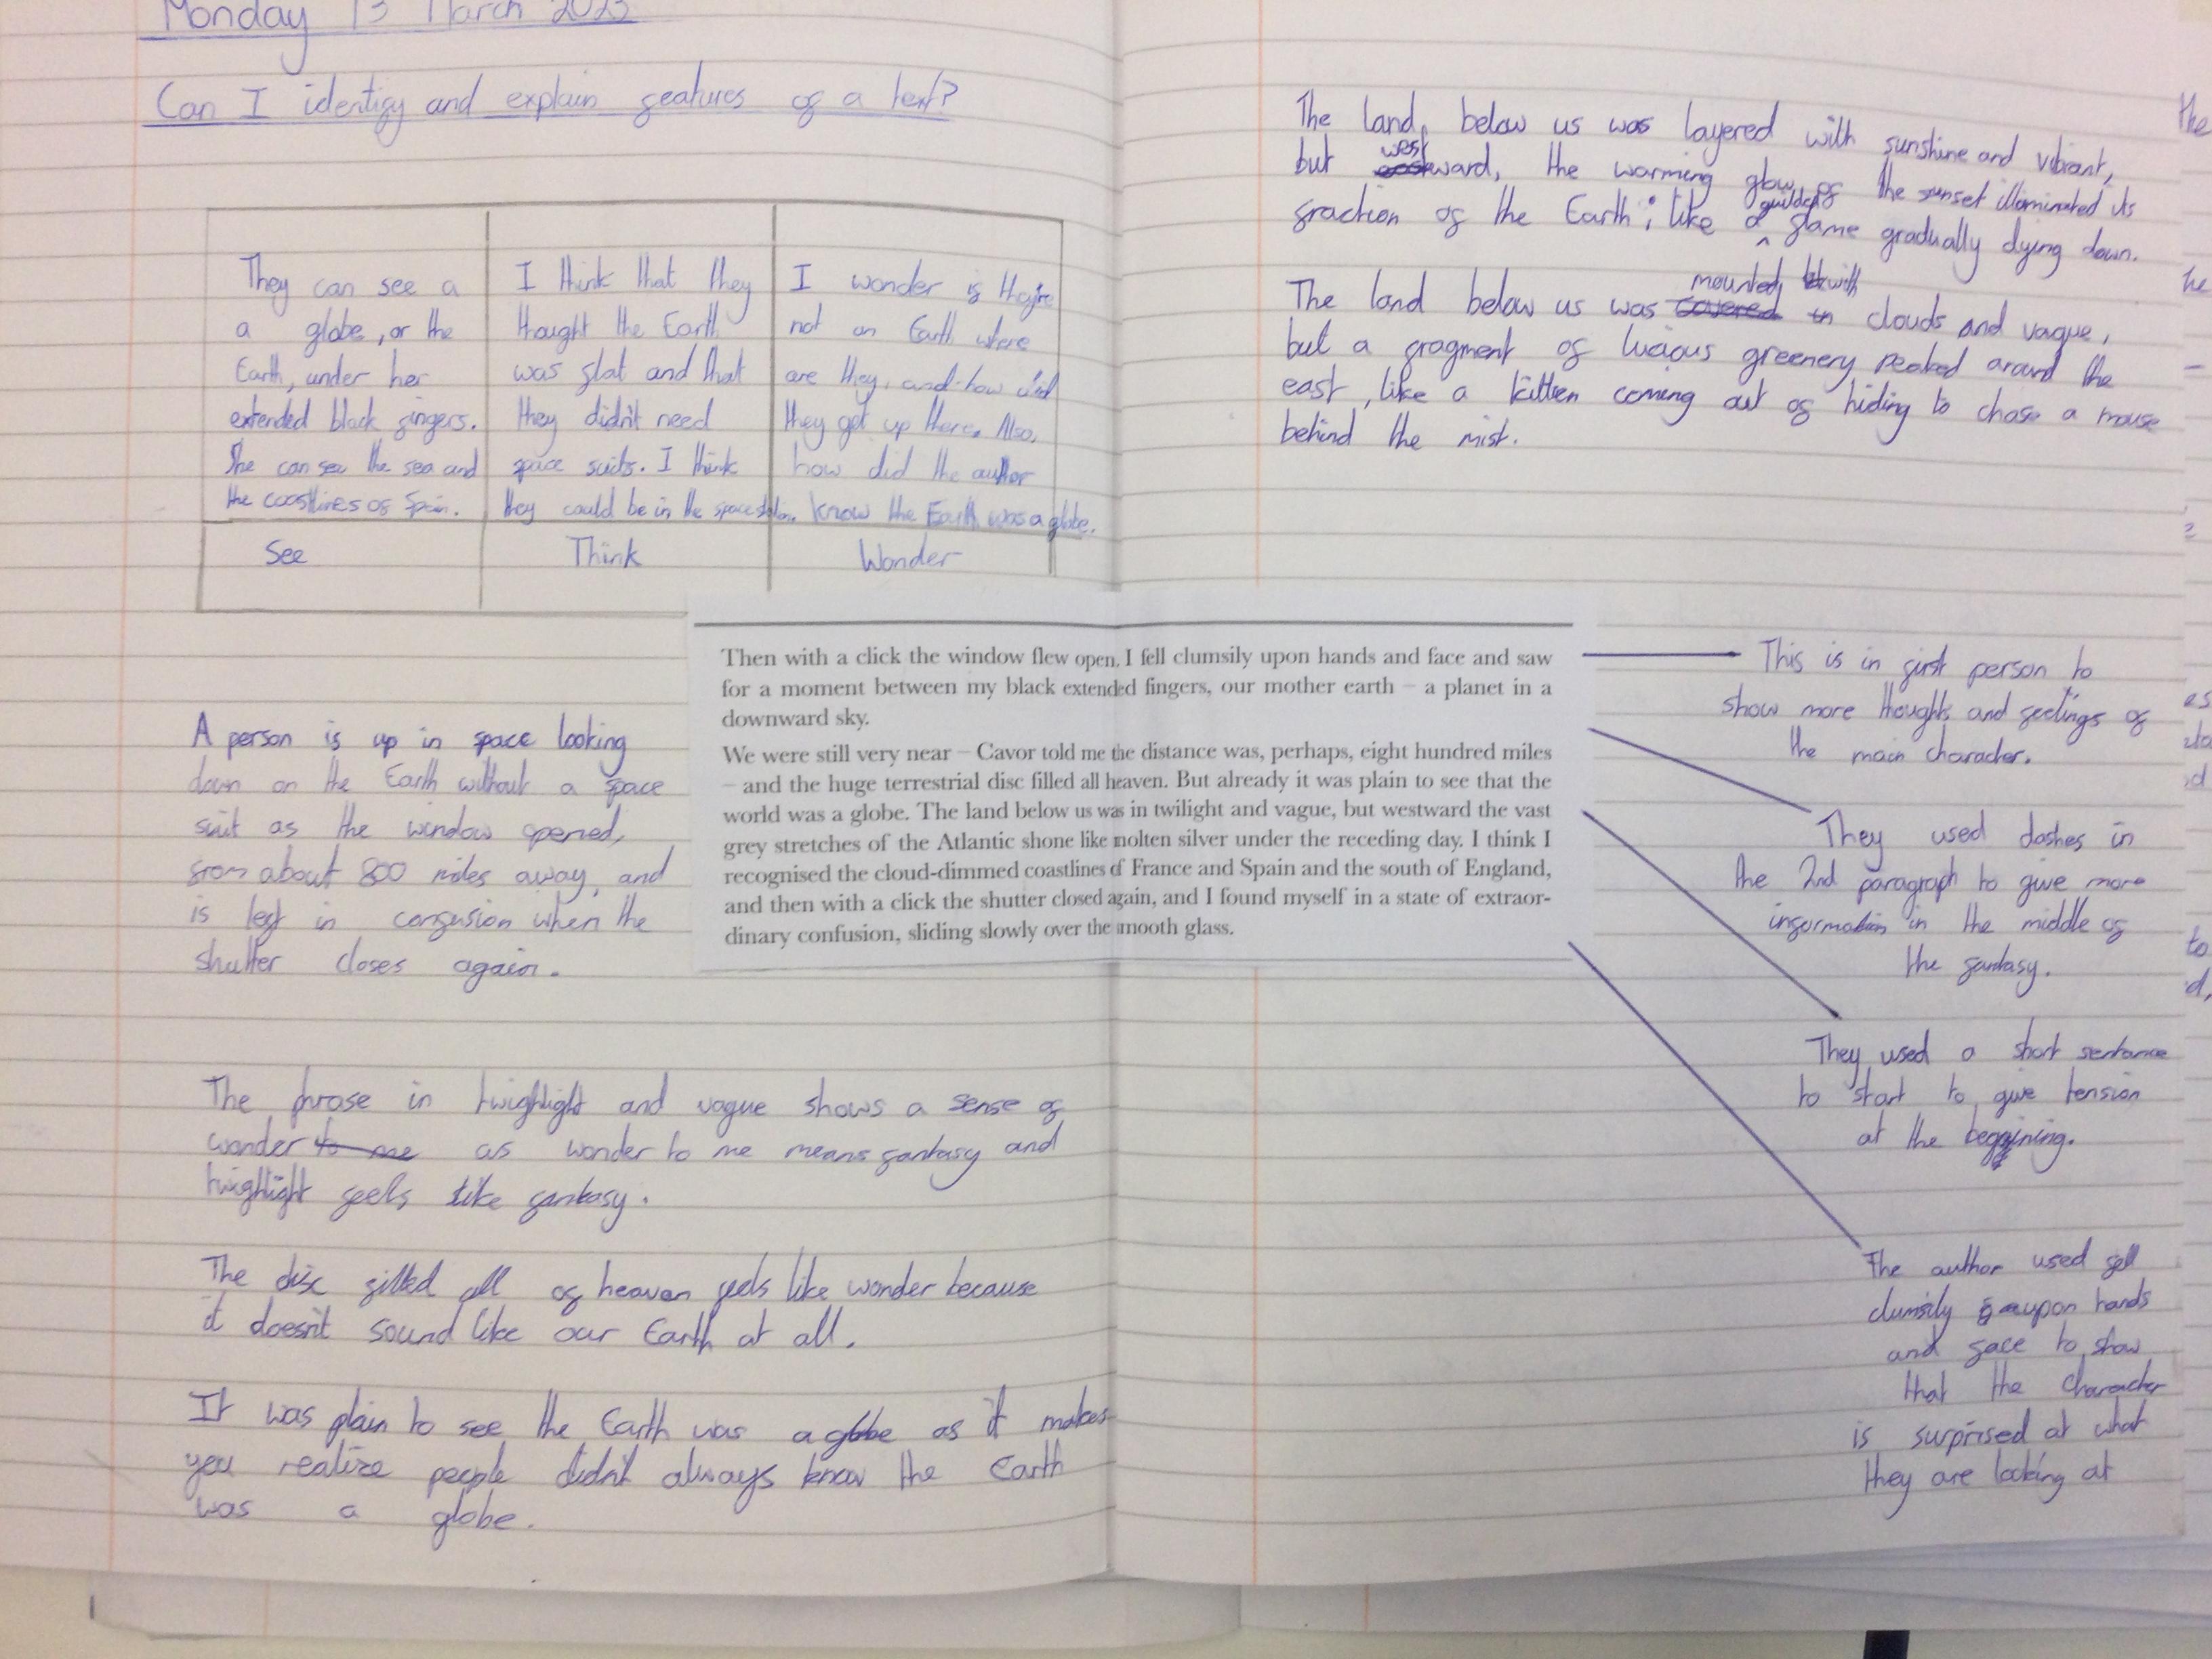 Monday 13 March 2023
Can I identify and explain features of a text?
They can see a
a globe, or the
Earth, under her
extended black fingers.
She can see the sea and
the coastlines of Spain.
See
I think that they
thought the Earth
was flat and that
they didn't need
space suits. I think
they could be in the space station.
Think
I wonder if they're
not on Earth where
are they, and how did
they get up there. Also,
how did the author
know the Earth was a globe.
Wonder
A person is up in space looking
down on the Earth without a space
suit as the window opened,
from about 800 miles away, and
is left in confusion when the
shutter closes again.
The phrase in twighlight and vague shows a sense of
wonder to me as wonder to me means fantasy and
twighlight feels like fantasy.
The disc filled all of heaven feels like wonder because
it doesn't sound like our Earth at all.
It was plain to see the Earth was a globe as it makes
you realize people didn't always know the Earth
was a globe.
Then with a click the window flew open. I fell clumsily upon hands and face and saw
for a moment between my black extended fingers, our mother earth – a planet in a
downward sky.
We were still very near – Cavor told me the distance was, perhaps, eight hundred miles
– and the huge terrestrial disc filled all heaven. But already it was plain to see that the
world was a globe. The land below us was in twilight and vague, but westward the vast
grey stretches of the Atlantic shone like molten silver under the receding day. I think I
recognised the cloud-dimmed coastlines of France and Spain and the south of England,
and then with a click the shutter closed again, and I found myself in a state of extraor-
dinary confusion, sliding slowly over the smooth glass.
The land, below us was layered with sunshine and vibrant,
but westward, the warming glow of the sunset illuminated its
fraction of the Earth; like a flame gradually dying down.
The land below us was mounted with clouds and vague,
but a fragment of lucious greenery peaked around the
east, like a kitten coming out of hiding to chase a mouse
behind the mist.
This is in first person to
show more thoughts and feelings of
the main character.
They used dashes in
the 2nd paragraph to give more
information in the middle of
the fantasy.
They used a short sentance
to start to give tension
at the beggining.
The author used fell
clumsily upon hands
and face to show
that the character
is surprised at what
they are looking at
the
he
es
d
to
d,